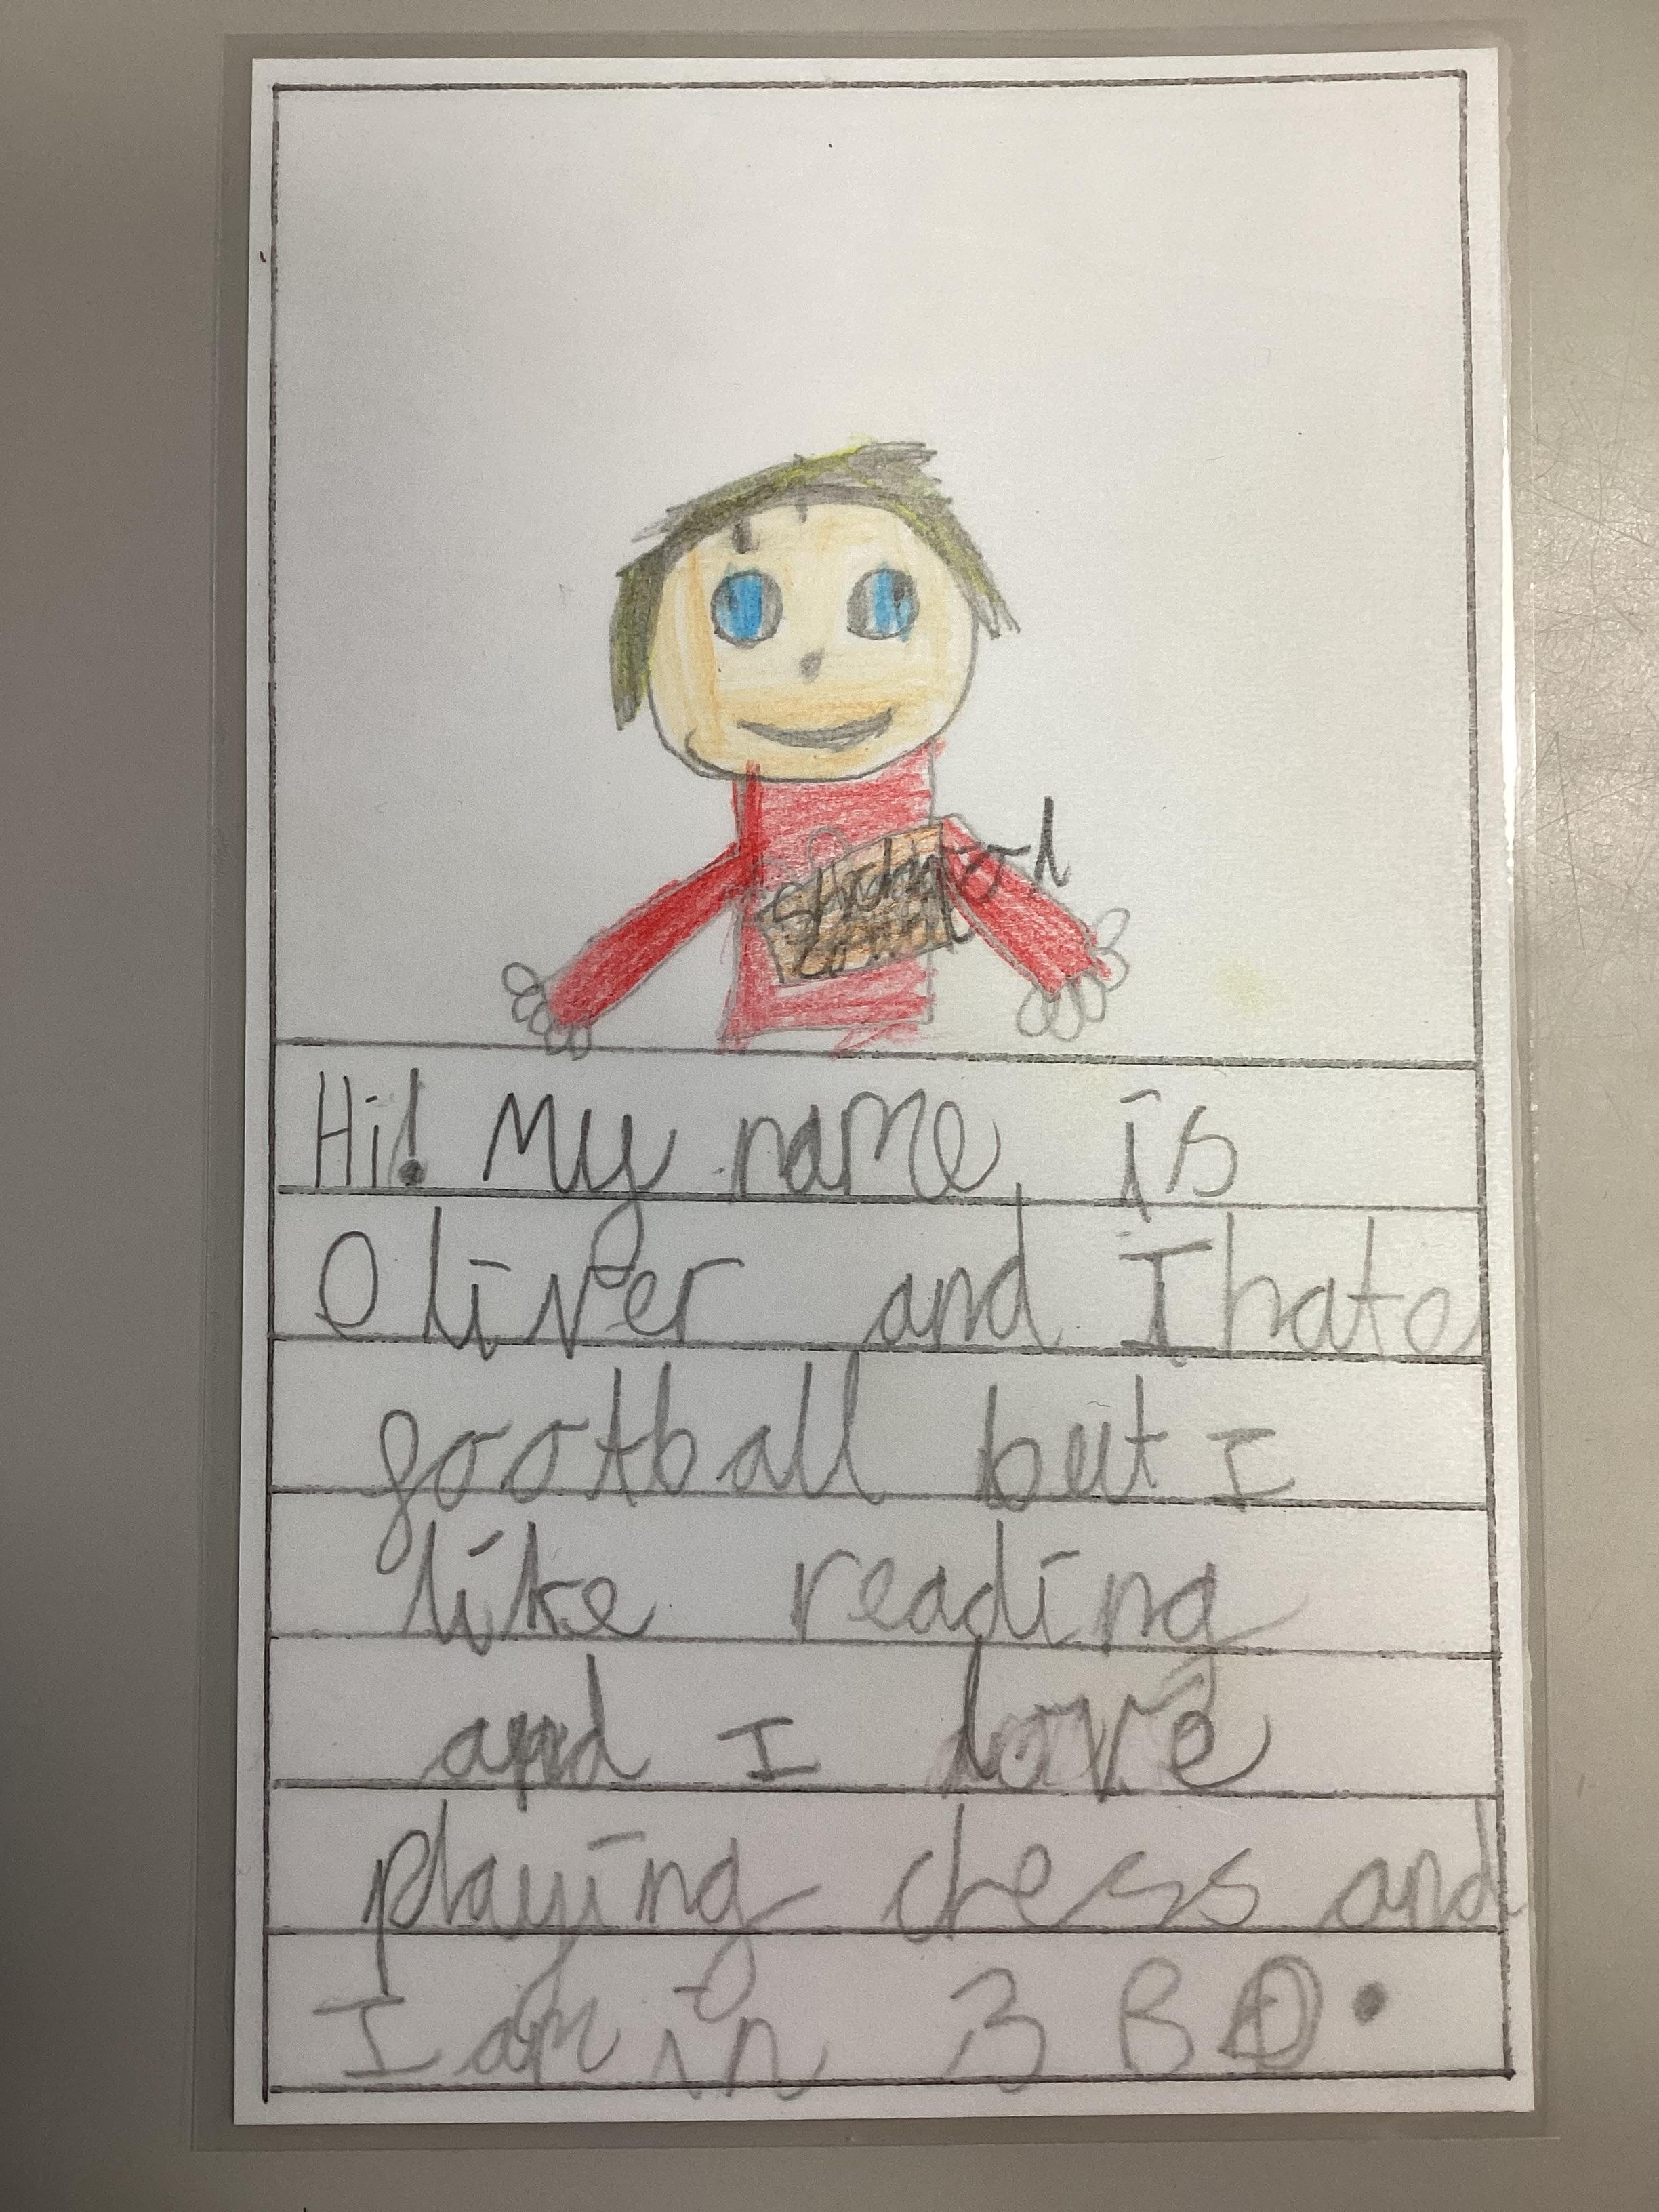 Hi! My name is
Oliver and I hate
football but I
like reading
and I love
playing chess and
I am in 3 BD.